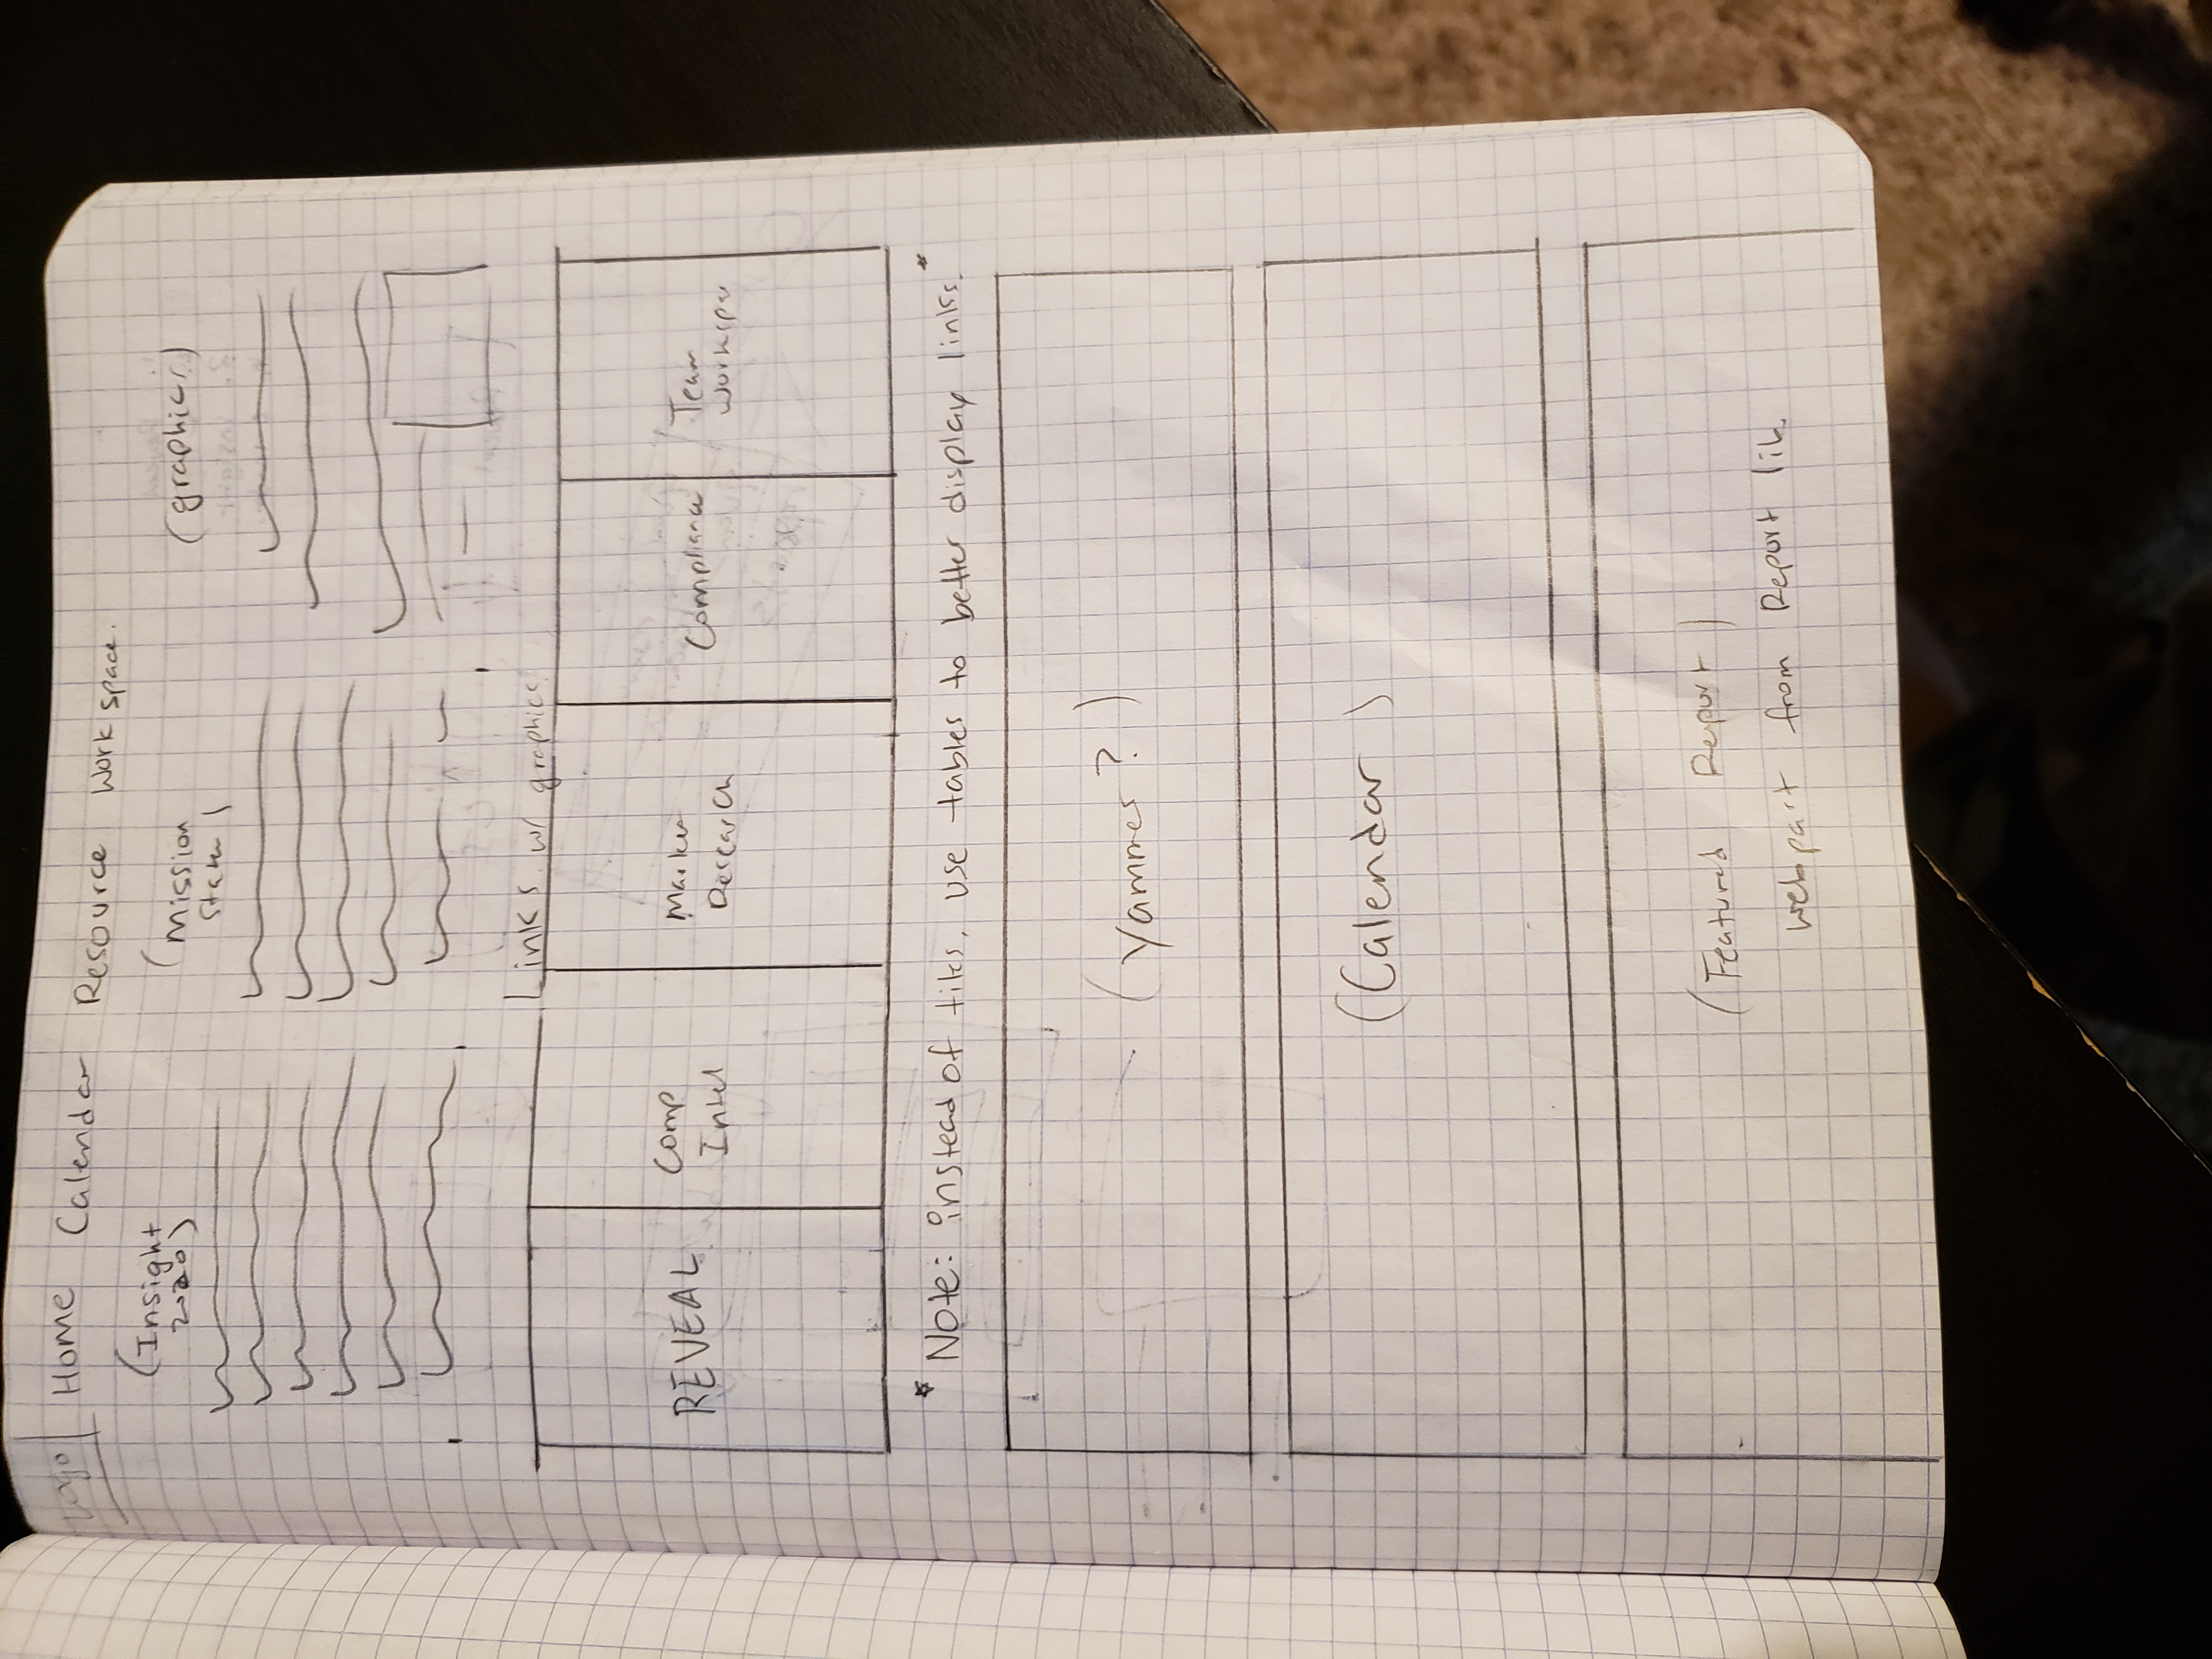 Logo Home Calendar Resource Workspace.
(Insight
2020)
(Mission
State)
(graphics)
Links w/ graphics
REVEAL
Comp
Intel
Market
Research
Compliance
Team
Workspa
* Note: instead of tiles, use tables to better display links. *
(Yammer?)
(Calendar)
(Featured Report)
webpart from Report lib.